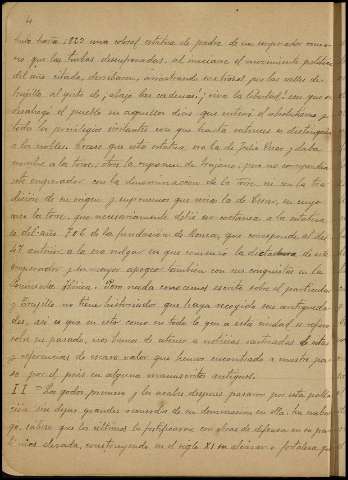 4
hubo hasta 1822 una colosal estatua de piedra de un emperador roma-
no que las turbas desenfrenadas, al iniciarse el movimiento político
del año citado, derribaron, arrastrando sus trozos por las calles de
Trujillo al grito de ¡abajo las cadenas! ¡viva la libertad! con que se
desahogó el pueblo en aquellos días que enterró el absolutismo y
todo los privilegios irritantes con que hasta entonces se distinguía
a los nobles. Créese que esta estatua era la de Julio César y daba
nombre a la torre. Otros la suponen de Trajano, pero no correspondía
este emperador con la denominación de la torre ni con la tra-
dición de su origen y suponemos que sería la de César, en cuyo
caso la torre, que necesariamente debió ser coetánea a la estatua
es del año 706 de la fundación de Roma, que corresponde al de
47 anterior a la era vulgar en que comenzó la dictadura de este
emperador y su mayor apogeo también con sus conquistas en la
Península Ibérica. Como nada conocemos escrito sobre el particular
y Trujillo no tiene historiador que haya recogido sus antigüeda-
des, así es que en esto como en todo lo que a esta ciudad se refiere
sobre su pasado, nos hemos de atener a noticias rastreadas de citas
y referencias de escaso valor que hemos encontrado a nuestro pa-
so por el país en algunos manuscritos antiguos.
II = Los godos, primero, y los árabes después pasaron por esta pobla-
ción sin dejar grandes recuerdos de su dominación en ella. Sin embar-
go, sábese que los últimos la fortificaron con obras de defensa en su par-
te más elevada, construyendo en el siglo XI su alcázar o fortaleza, por